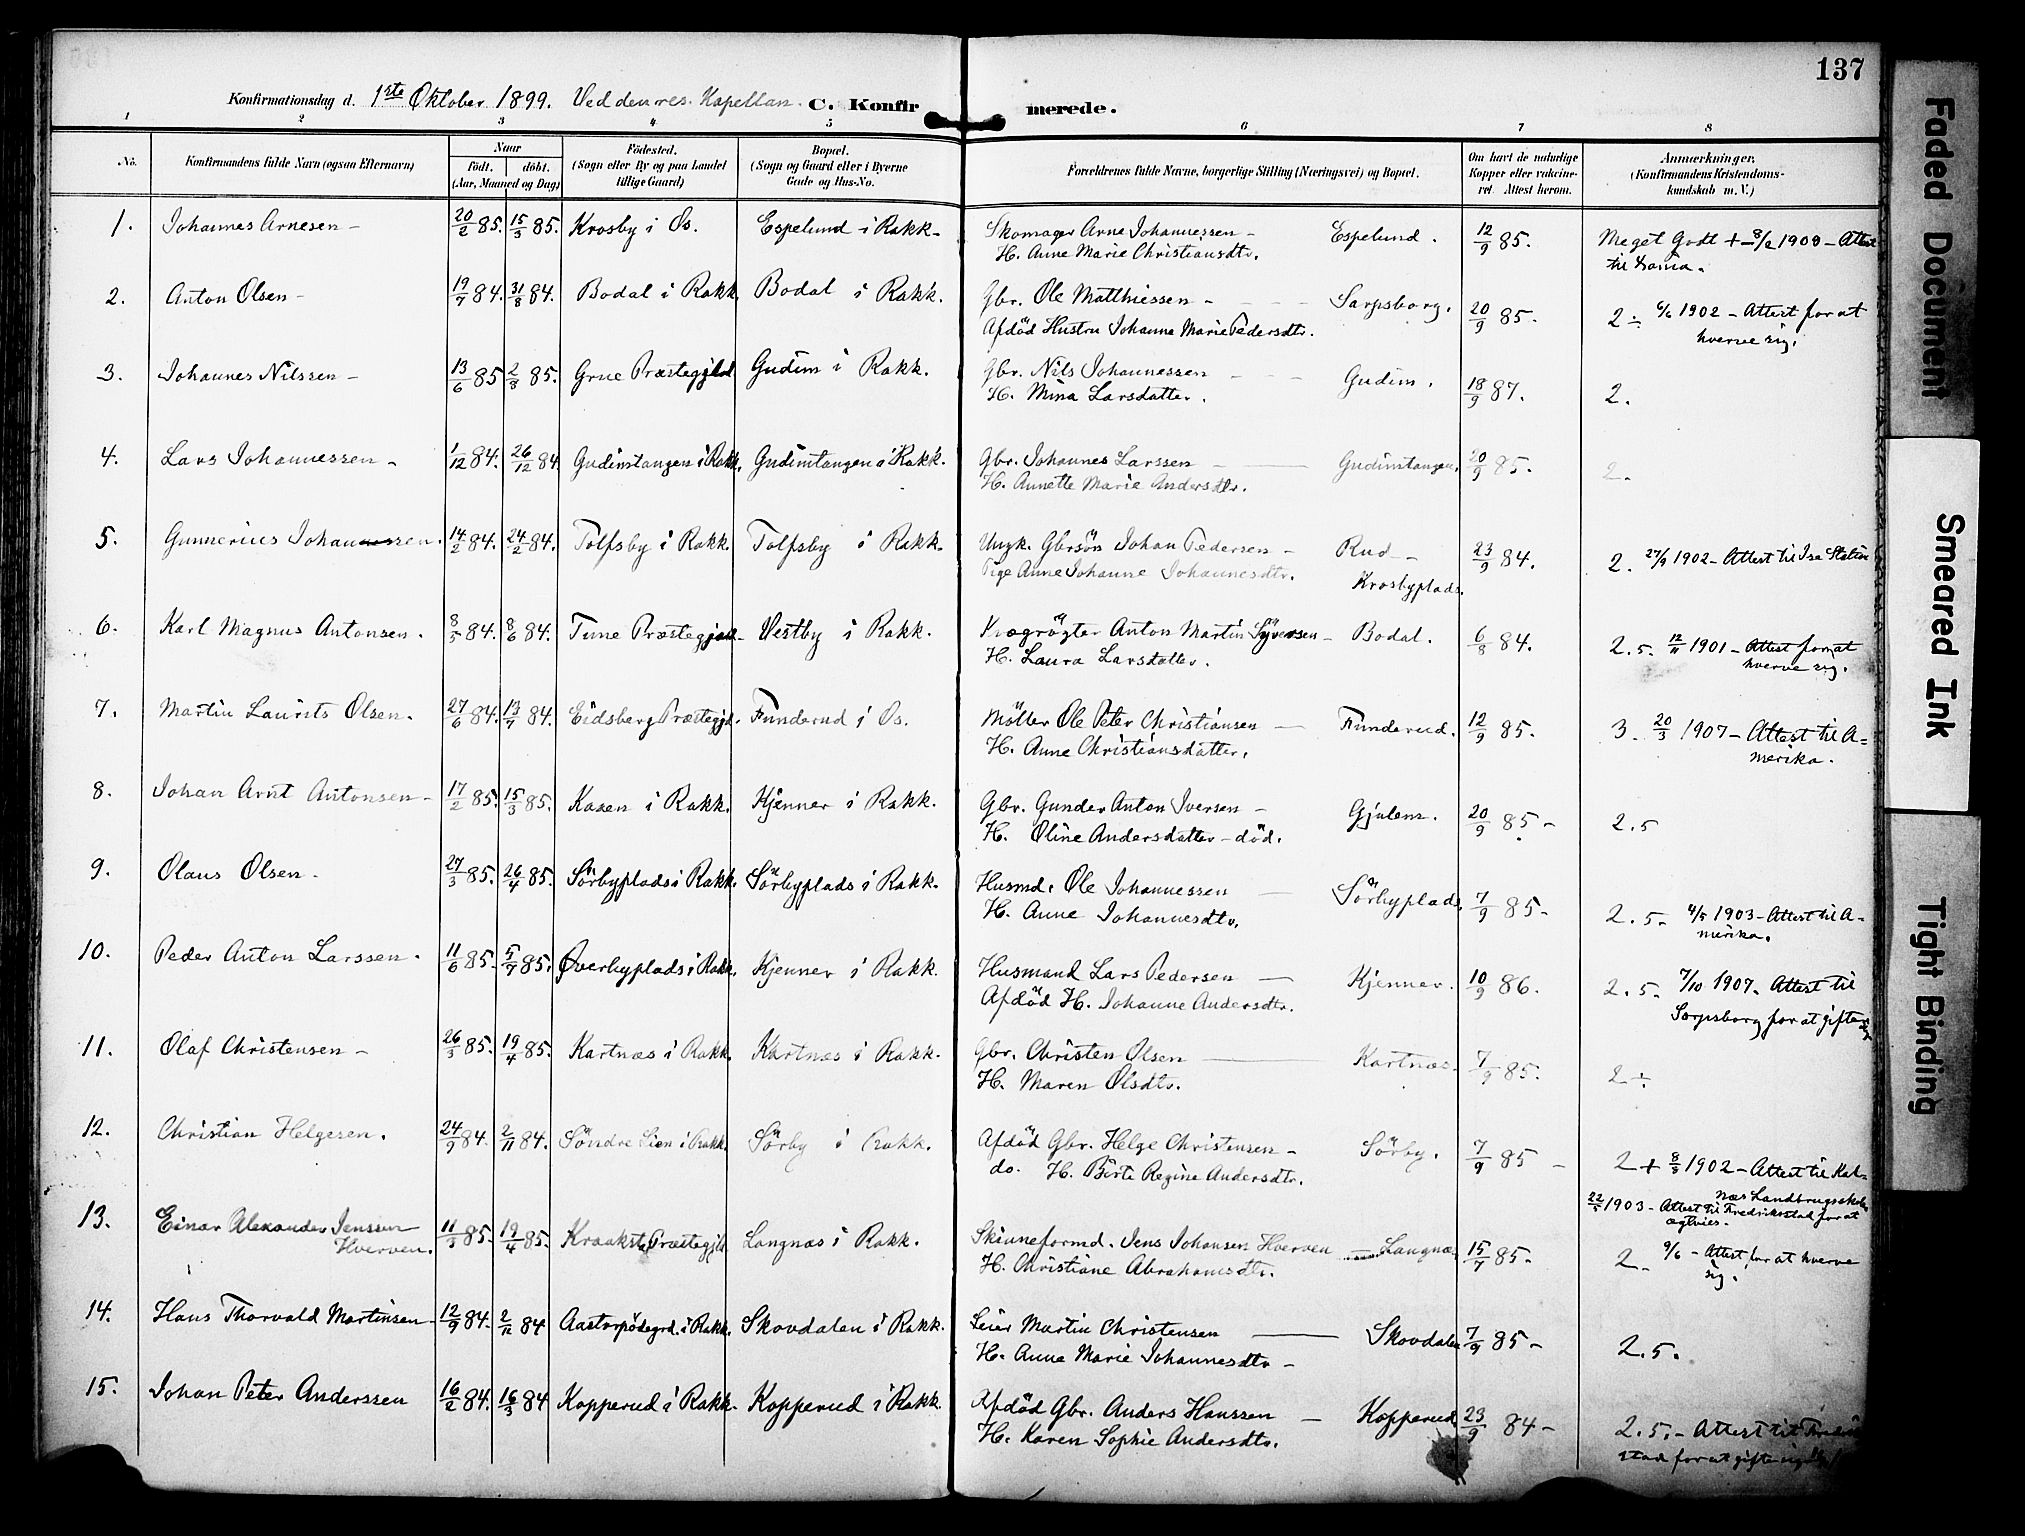 137
Konfirmationsdag d. 1ste Oktober 1899. Ved den res. Kapellan. C. Konfirmerede.
1 2 3 4 5 6 7 8
No. Konfirmandens fulde Navn (ogsaa Efternavn) Naar født. døbt. (Aar, Maaned og Dag) Fødested. (Sogn eller By og paa Landet tillige Gaard) Bopæl. (Sogn og Gaard eller i Byerne Gade og Hus-No. Forældrenes fulde Navne, borgerlige Stilling (Næringsvei) og Bopæl. Om havt de naturlige Kopper eller vaccineret. Attest herom. Anmærkninger. (Konfirmandens Kristendomskundskab m. V.)
1. Johannes Arnesen – 20/2 85. 15/3 85. Krosby i Os. Espelund i Rakk. Skomager Arne Johannessen – Espelund. 12/9 85. Meget Godt + – 8/2 1900 – Attest
H. Anne Marie Christiansdtr. til
2. Anton Olsen – 19/7 84. 31/8 84. Bodal i Rakk. Bodal i Rakk. Gbr. Ole Matthiessen – Sarpsborg. 20/9 85. 2 ÷ 6/6 1902 – Attest for at
Afdöd Hustru Johanne Marie Pedersdtr. hverve sig.
3. Johannes Nilssen – 13/6 85 2/8 85. Grue Præstegjeld Gudim i Rakk. Gbr. Nils Johannessen – Gudim. 18/9 87. 2.
H. Mina Larsdatter.
4. Lars Johannessen – 1/12 84. 26/12 84. Gudimtangen i Rakk. Gudimtangen i Rakk. Gbr. Johannes Larssen – Gudimtangen. 20/9 85. 2.
H. Annette Marie Andersdtr.
5. Gunnerius Johannessen. 14/2 84. 24/2 84. Tolfsby i Rakk. Tolfsby i Rakk. Ungk. Gbrsön Johan Pedersen – Rud – 23/9 84. 2. 27/9 1902 – Attest til Ise Station
Pige Anne Johanne Johannesdtr. Krosbyplads.
6. Karl Magnus Antonsen. 8/5 84. 8/6 84. Tune Præstegjeld. Vestby i Rakk. Krægrögter Anton Martin Syversen – Bodal. 6/8 84. 2.5. 12/11 1901 – Attest for at
H. Laura Larsdatter. hverve sig.
7. Martin Laurits Olsen. 27/6 84. 13/7 84. Eidsberg Præstegjld. Funderud i Os. Möller Ole Peter Christiansen – Funderud. 12/9 85. 3. 20/3 1907 – Attest til A=
H. Anne Christiansdatter. merika.
8. Johan Arnt Antonsen – 17/2 85. 15/3 85. Kasen i Rakk. Kjenner i Rakk. Gbr. Gunder Anton Iversen – Gjulem. 20/9 85 – 2.5
H. Oline Andersdatter – död.
9. Olaus Olsen – 27/3 85. 26/4 85. Sörbyplads i Rakk. Sörbyplads i Rakk. Husmd. Ole Johannessen – Sörbyplads. 7/9 85 – 2.5. 4/5 1903 – Attest til A–
H. Anne Johannesdtr. merika.
10. Peder Anton Larssen. 11/6 85. 5/7 85. Øverbyplads i Rakk. Kjenner i Rakk. Husmand Lars Pedersen – Kjenner. 10/9 86. 2.5. 7/10 1907. Attest til
Afdöd H. Johanne Andersdtr. Sarpsborg for at gifte sig
11. Olaf Christensen – 26/3 85. 19/4 85. Kartnæs i Rakk. Kartnæs i Rakk. Gbr. Christen Olsen – Kartnæs. 7/9 85. 2 ÷
H. Maren Olsdtr.
12. Christian Helgesen. 24/9 84. 2/11 84. Söndre Lien i Rakk. Sörby i Rakk. Afdöd Gbr. Helge Christensen – Sörby. 7/9 85 – 2 + 8/8 1902 – Attest til Kal-
do. H. Birte Regine Andersdtr. næs Landbrugsskole
22/5 1903 – Attest til Fredrikstad for at
13. Einar Alexander Jenssen 11/3 85. 19/4 85. Kraakstad Præstegjld Langnæs i Rakk. Skinneformd. Jens Johansen Hverven – Langnæs 15/7 85. 2. 9/6 – Attest for at hverve
Hverven. H. Christiane Abrahamsdtr. sig.
14. Hans Thorvald Martinsen 12/9 84. 2/11 84 i Rakk. Skovdalen i Rakk. Leier Martin Christensen – Skovdalen 7/9 85 – 2.5.
H. Anne Marie Johannesdtr –
15. Johan Peter Anderssen 16/2 84. 16/3 84 Kopperud i Rakk. Kopperud i Rakk. Afdöd Gbr. Anders Hanssen – Kopperud. 23/9 84 – 2.5. – Attest til
H. Karen Sophie Andersdtr. stad for at gifte sig
Faded Document
Smeared Ink
Tight Binding